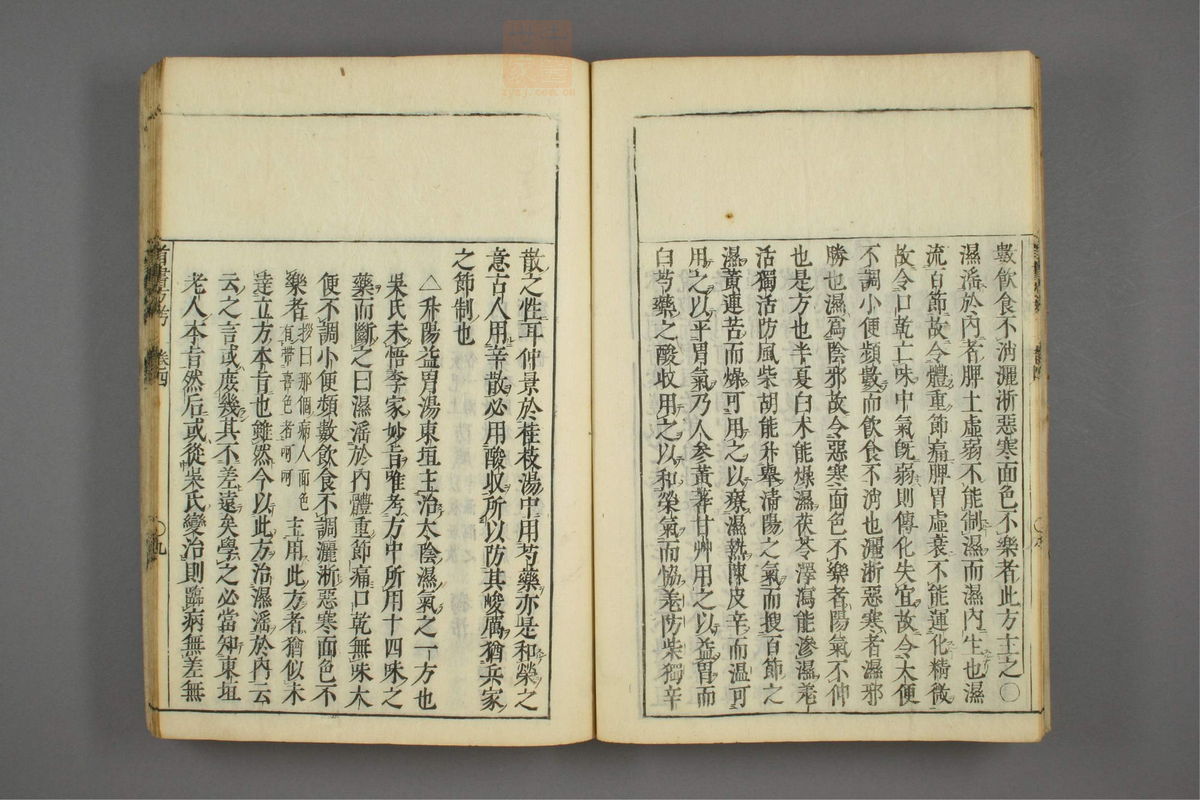 數飲食不消灑淅惡寒面色不樂者此方主之〇
濕滛於內者脾土虛弱不能制濕而濕內生也濕
流百節故令體重節痛脾胃虛衰不能運化精微
故令口乾亡味中氣旣弱則傳化失宜故令大便
不調小便頻數而飲食不消也灑淅惡寒者濕邪
勝也濕爲陰邪故令惡寒面色不樂者陽氣不伸
也是方也半夏白术能燥濕茯苓澤瀉能滲濕羌
活獨活防風柴胡能升舉清陽之氣而搜百節之
濕黃連苦而燥可用之以療濕熱陳皮辛而溫可
用之以平胃氣乃人參黃芪甘艸用之以益胃而
白芍藥之酸收用之以和榮氣而恊羌防柴獨辛
散之性耳仲景於桂枝湯中用芍藥亦是和榮之
意古人用辛散必用酸收所以防其峻厲猶兵家
之節制也
△升陽益胃湯東垣主治太陰濕氣之一方也
吳氏未悟李家妙旨唯考方中所用十四味之
藥而斷之曰濕滛於內體重節痛口乾無味大
便不調小便頻數飲食不調灑淅惡寒面色不
樂者拶曰那個病人面色有帶喜色者呵呵主用此方者猶似未
達立方本旨也雖然今以此方治濕滛於內云
云之言或庶幾其不差遠矣學之必當知東垣
老人本旨然后或從吳氏變治則臨病無差無
首書方考 卷四 〇九